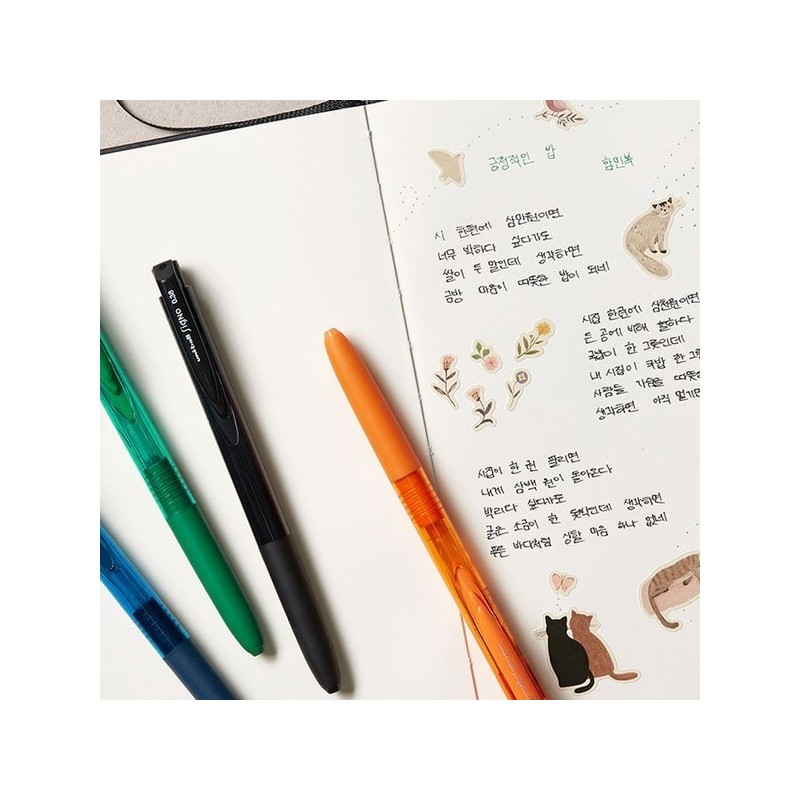 uni-ball Signo 0.38
긍정적인 밥 함민복
시 한편에 삼만원이면
너무 박하다 싶다가도
쌀이 두 말인데 생각하면
금방 마음이 따뜻한 밥이 되네
시집 한권에 삼천원이면
든 공에 비해 헐하다
국밥이 한 그릇인데
내 시집이 국밥 한 그릇
사람들 가슴을 따뜻
생각하면 아직 멀기만
시집이 한 권 팔리면
내게 삼백 원이 돌아온다
박리다 싶다가도
굵은 소금이 한 됫박인데 생각하면
푸른 바다처럼 상할 마음 하나 없네